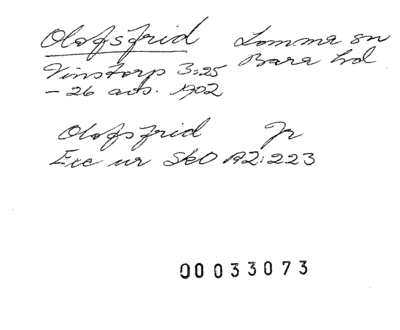 Olofsfrid Lomma sn
Vinstorp 3:25 Bara hd
- 26 avs. 1902
Olofsfrid Jr
Exc ur SkO A2:223
00033073